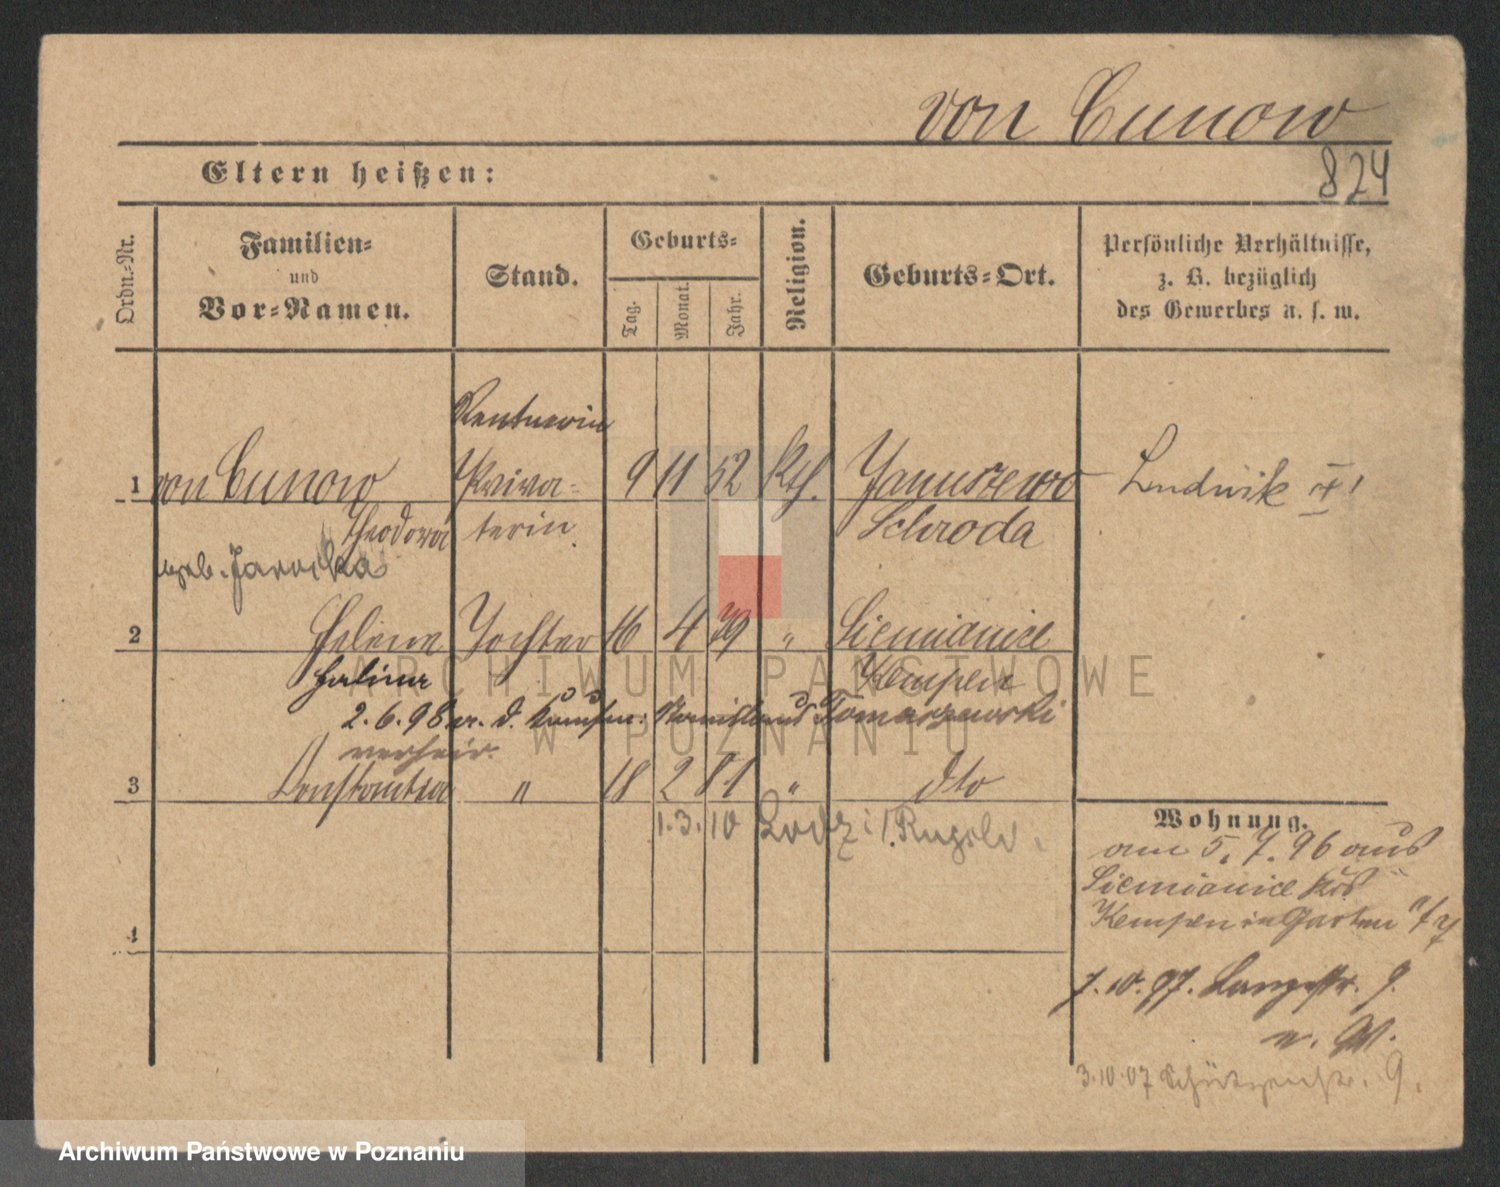 von Cunow
824
Eltern heißen:
Ordn.-Nr.
Familien-
und
Vor-Namen.
Stand.
Geburts-
Tag.
Monat.
Jahr.
Religion.
Geburts-Ort.
Persönliche Verhältnisse,
z. B. bezüglich
des Gewerbes u. s. w.
Rentnerin
1 von Cunow Priva- 9 11 52 Kth. Januszewo Ludwik
Theodora terin. Schroda
geb.
2 Helene Tochter 16 4 79 " Siemianice
Halina Kempen
2.6.98 d. Stanislaus Tomaszewski
verheir.
3 Constantia " 18 2 81 " dto
1.3.10 Lodz i/
Wohnung.
am 5.7.96 aus
Siemianice Krs
Kempen Garten 
4
7.10.97. Langestr. 9.
3.10.07 Schützenstr. 9.
ARCHIWUM PAŃSTWOWE
W POZNANIU
Archiwum Państwowe w Poznaniu